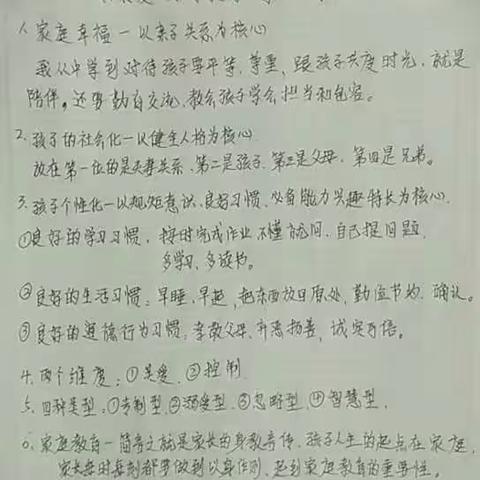 1、家庭幸福一以亲子关系为核心
我从中学到对待孩子要平等、尊重、跟孩子共度时光，就是
陪伴。还要勤肯交流，教会孩子学会担当和包容。
2、孩子的社会化一以健全人格为核心
放在第一位的是夫妻关系、第二是孩子、第三是父母、第四是兄弟。
3、孩子个性化一以规矩意识、良好习惯、必备能力兴趣特长为核心、
①良好的学习习惯，按时完成作业、不懂就问、自己提问题、
多学习、多读书。
②良好的生活习惯：早睡、早起、把东西放回原处、勤俭节约、
③良好的道德行为习惯：孝敬父母、弃恶扬善、诚实可信。
4、两个维度：①关爱、②控制
5、四种类型：①专制型、②溺爱型、③忽略型、④智慧型、
6、家庭教育一简言之就是家长的身教言传、孩子人生的起点在家庭、
家长要时每刻都要做到以身作则、起到家庭教育的重要性。